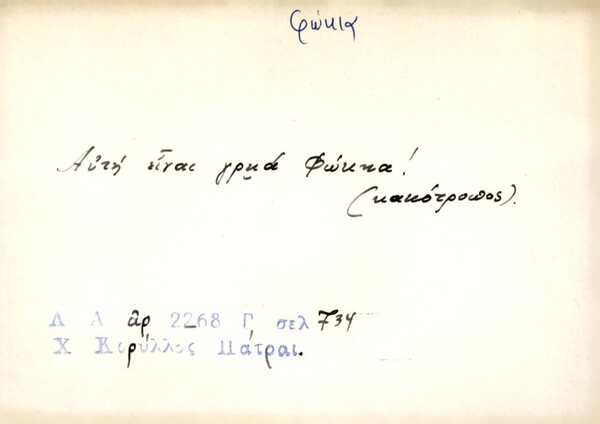 φώκια
Αὐτή εἶναι γρῃά Φώκηα!
(κακότροπος).
Λ Α ἀρ 2268 Γ σελ 734
Χ Κορύλλος Πάτραι.